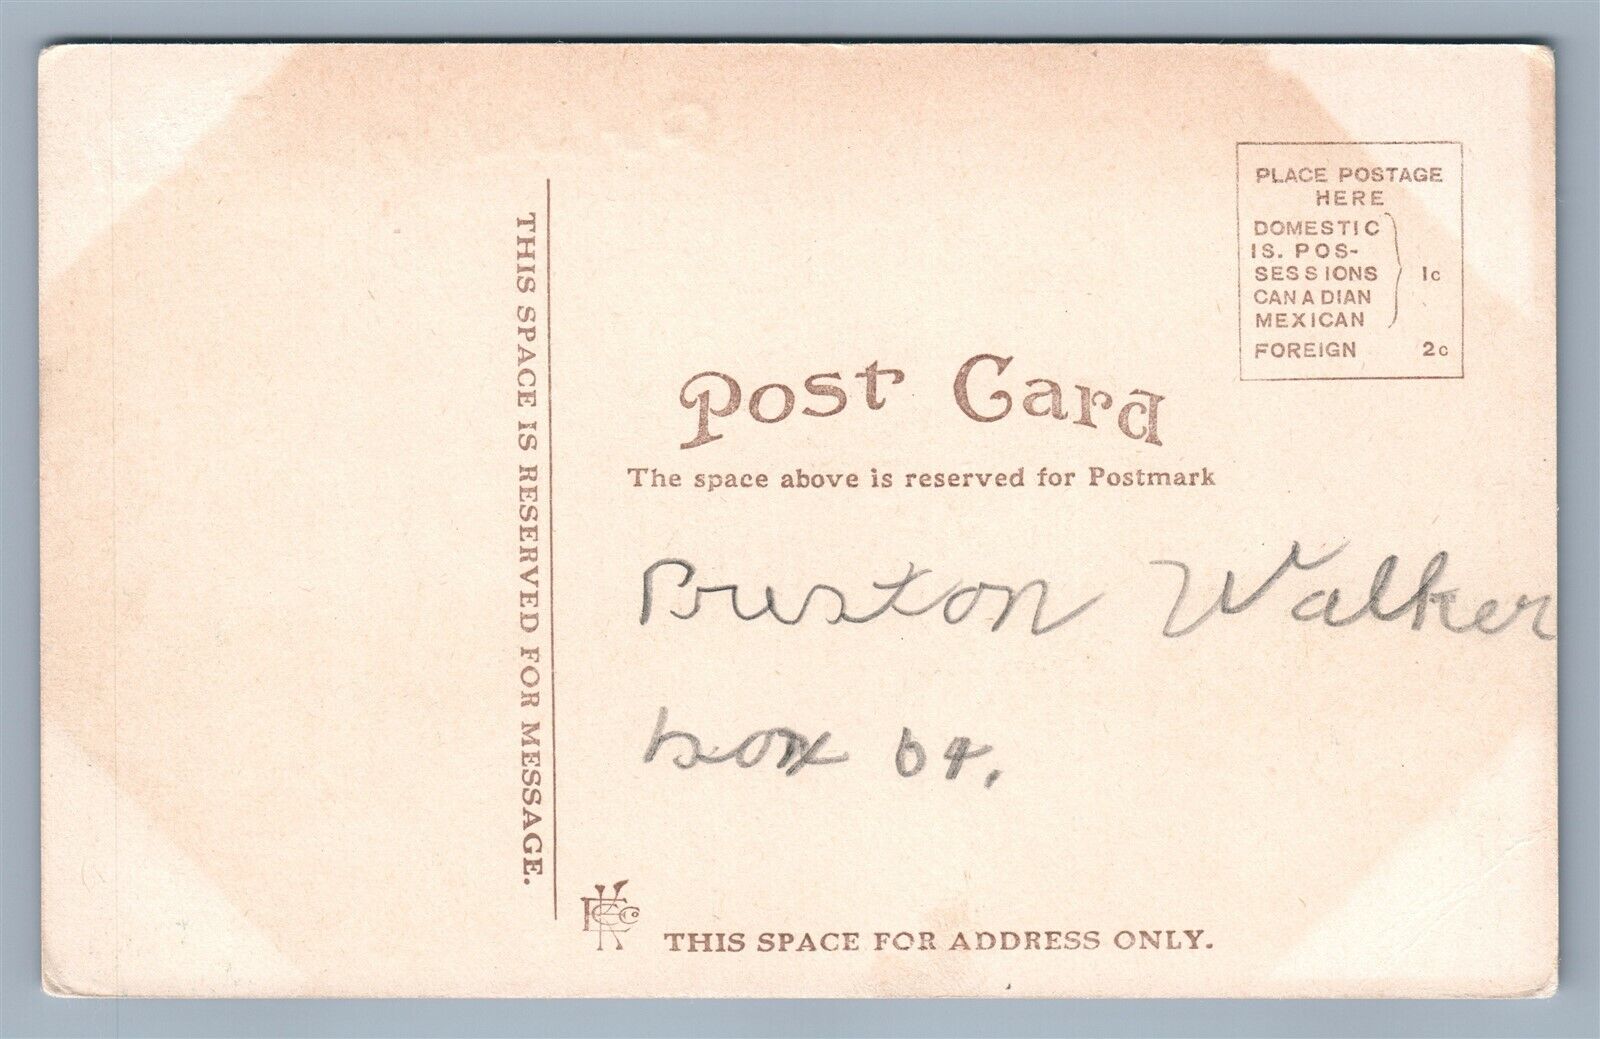 THIS SPACE IS RESERVED FOR MESSAGE.
PLACE POSTAGE
HERE
DOMESTIC
IS. POS-
SESSIONS
CANADIAN
MEXICAN
1c
FOREIGN 2c
Post Card
The space above is reserved for Postmark
Preston Walker
box 64.
THIS SPACE FOR ADDRESS ONLY.